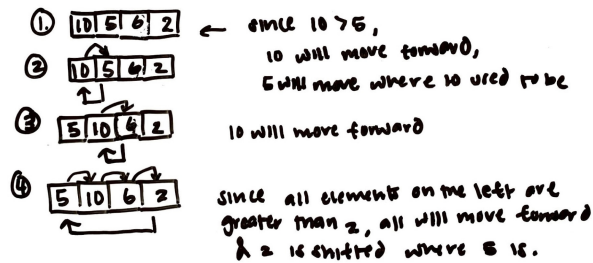 ① 10 5 6 2 ← since 10 > 5,
10 will move forward,
② 10 5 6 2
5 will move where 10 used to be
③ 5 10 6 2 10 will move forward
④ 5 10 6 2
since all elements on the left are
greater than 2, all will move forward
& 2 is shifted where 5 is.